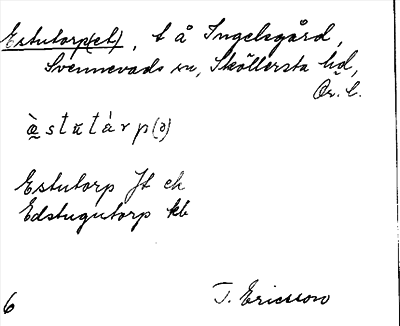 Estutorp(et), t å Ingelsgård,
Svennevads sn, Sköllersta hd,
Ör. l.
æ̀stʉtárp(ə)
Estutorp Jt ek
Edstugutorp kb
T. Ericsson
6